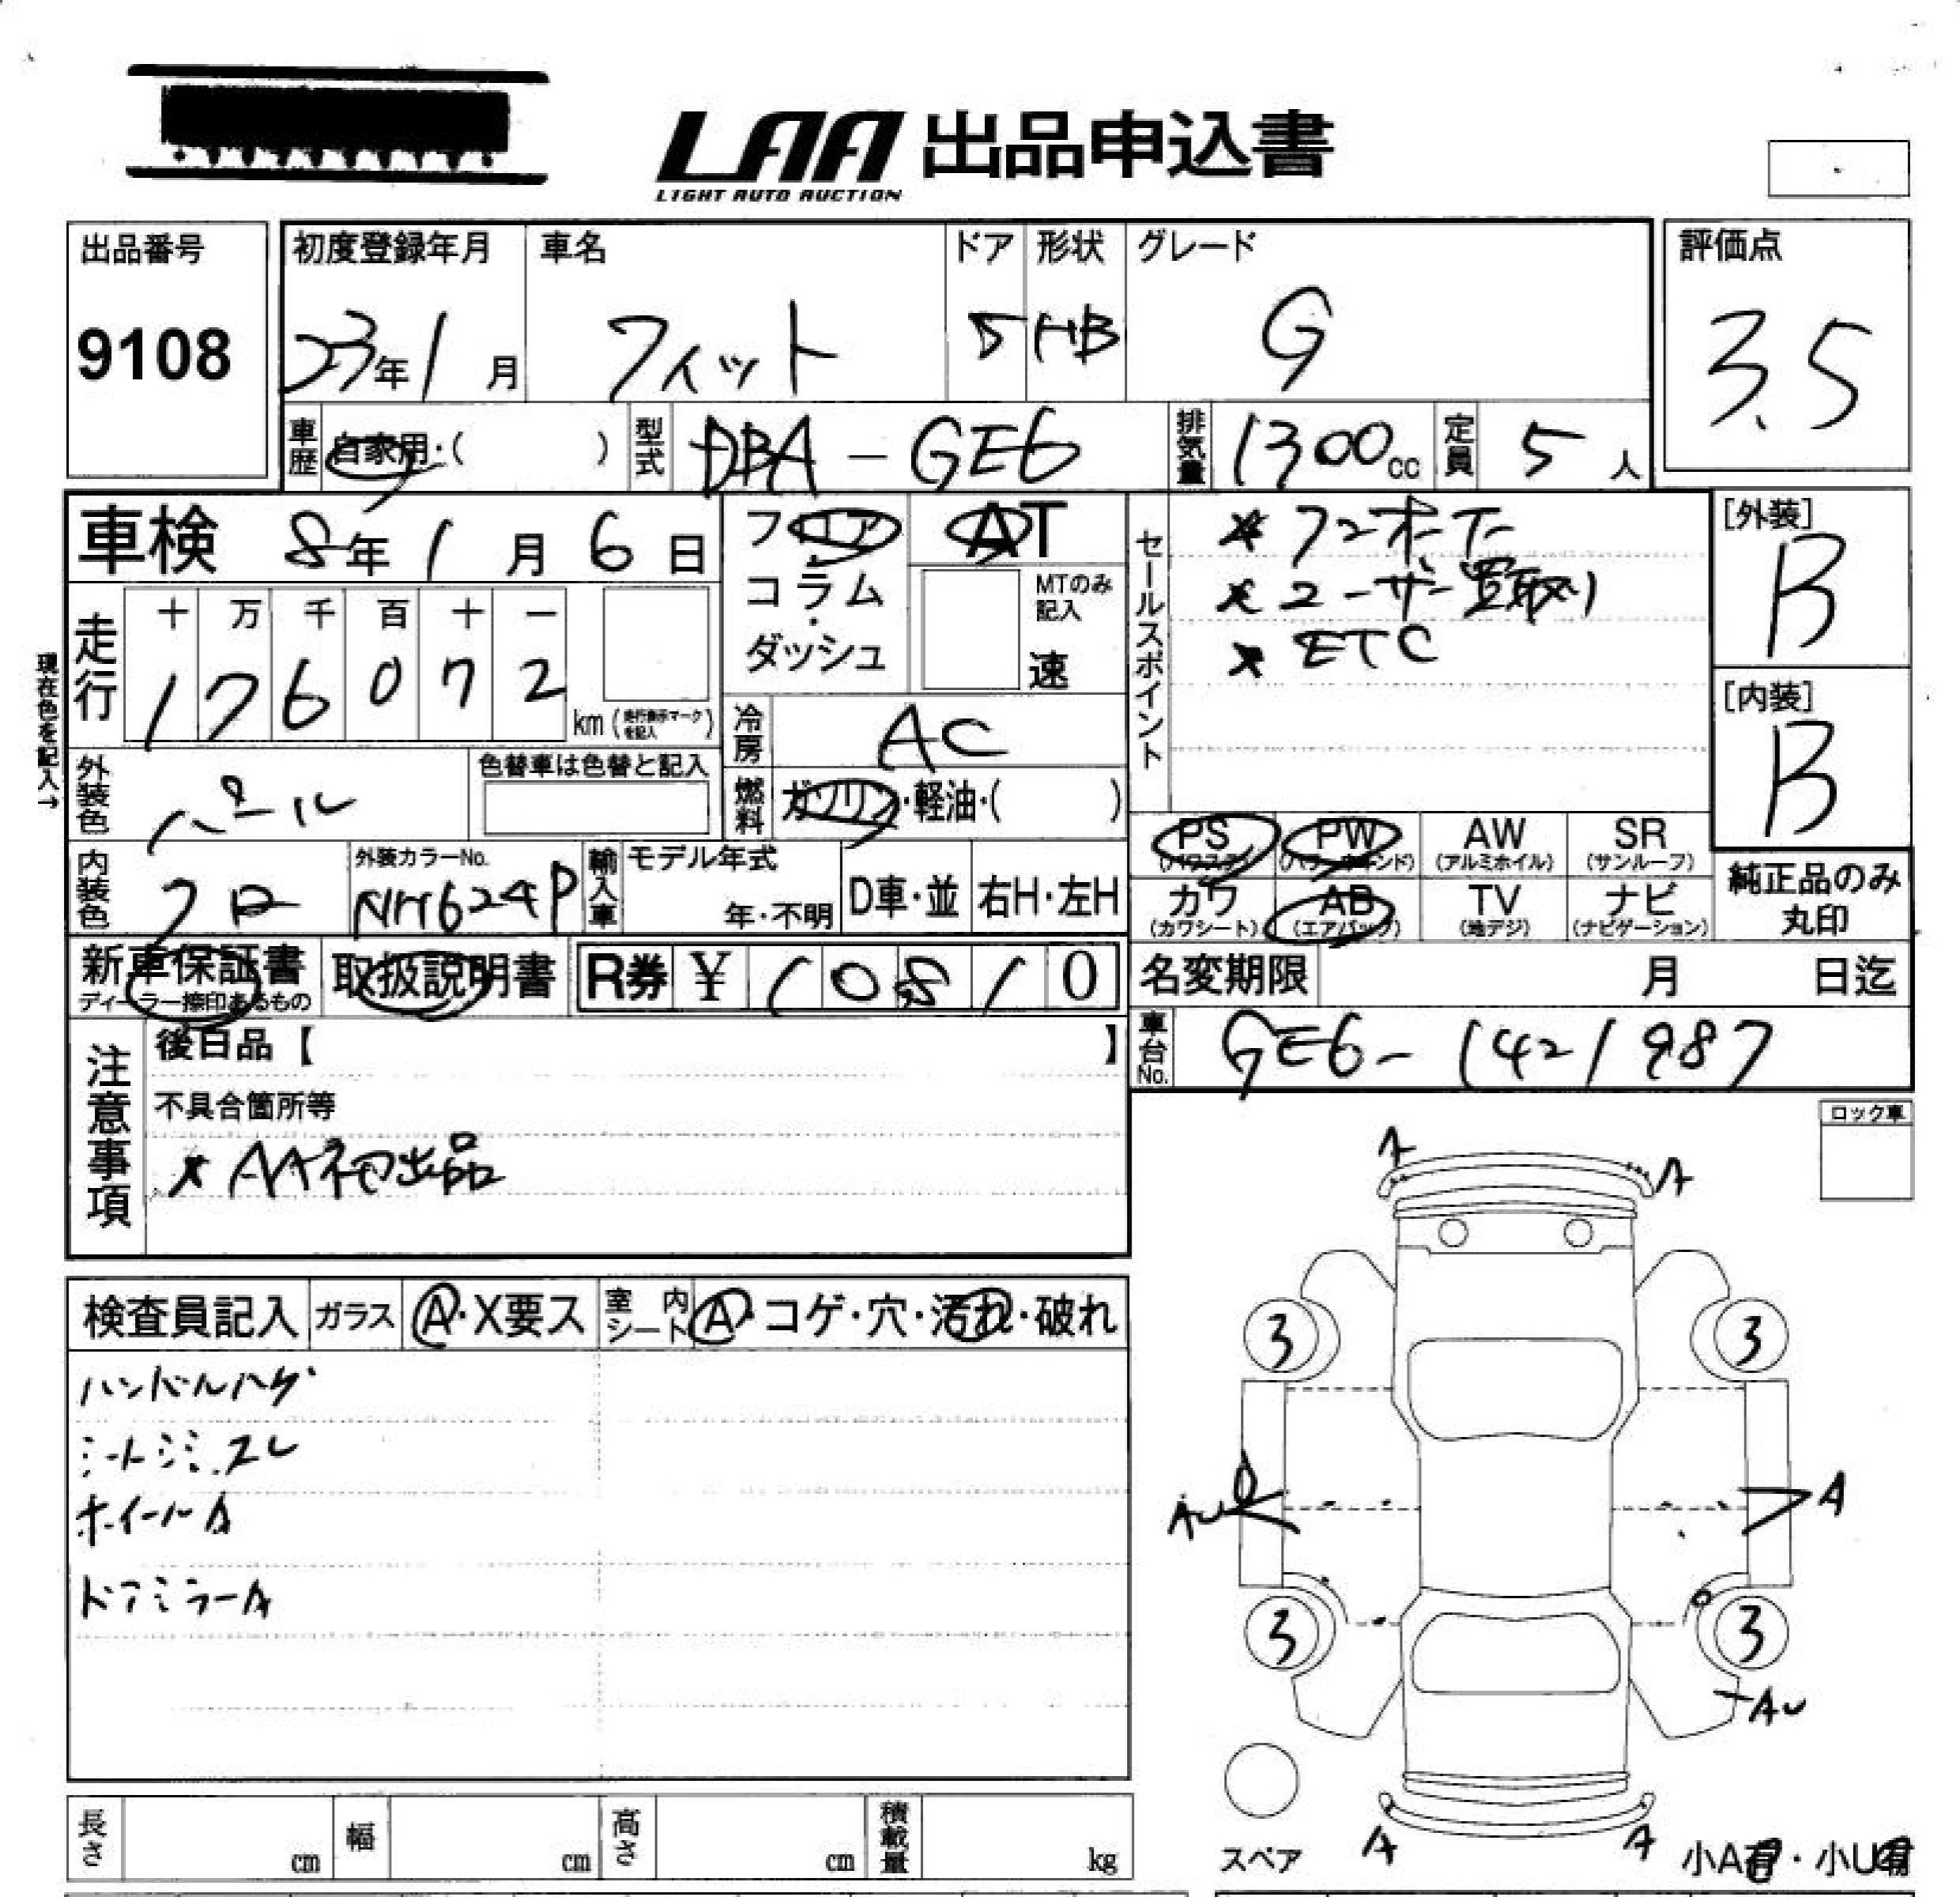 LAA 出品申込書
LIGHT AUTO AUCTION
出品番号 9108
初度登録年月 23年1月
車名 フィット
ドア 5
形状 HB
グレード G
評価点 3.5
車歴 自家用・( )
型式 DBA-GE6
排気量 1300cc
定員 5人
車検 8年1月6日
フロア・コラム・ダッシュ
AT
MTのみ記入
速
セールスポイント
* ワンオーナー
* ユーザー買取り
* ETC
[外装] B
[内装] B
現在色を記入→
走行 十 万 千 百 十 一
176072 km (走行表示マークを記入)
冷房 AC
燃料 ガソリン・軽油・( )
外装色 パール
色替車は色替と記入
内装色 クロ
外装カラーNo. NH624P
輸入車 モデル年式 年・不明
D車・並
右H・左H
PS (パワステ)
PW (パワーウインド)
AW (アルミホイル)
SR (サンルーフ)
カワ (カワシート)
AB (エアバック)
TV (地デジ)
ナビ (ナビゲーション)
純正品のみ丸印
新車保証書
ディーラー捺印あるもの
取扱説明書
R券 ¥ 10810
名変期限 月 日迄
車台No. GE6-1421987
注意事項
後日品【 】
不具合箇所等
* AA初出品
ロック車
検査員記入
ガラス A・X要ス
室内シート A・コゲ・穴・汚れ・破れ
ハンドルハゲ
シートシミ.スレ
ホイールA
ドアミラーA
A A
3 3
AU A
3 3
AU
A A
スペア
小A有・小U有
長さ cm
幅 cm
高さ cm
積載量 kg